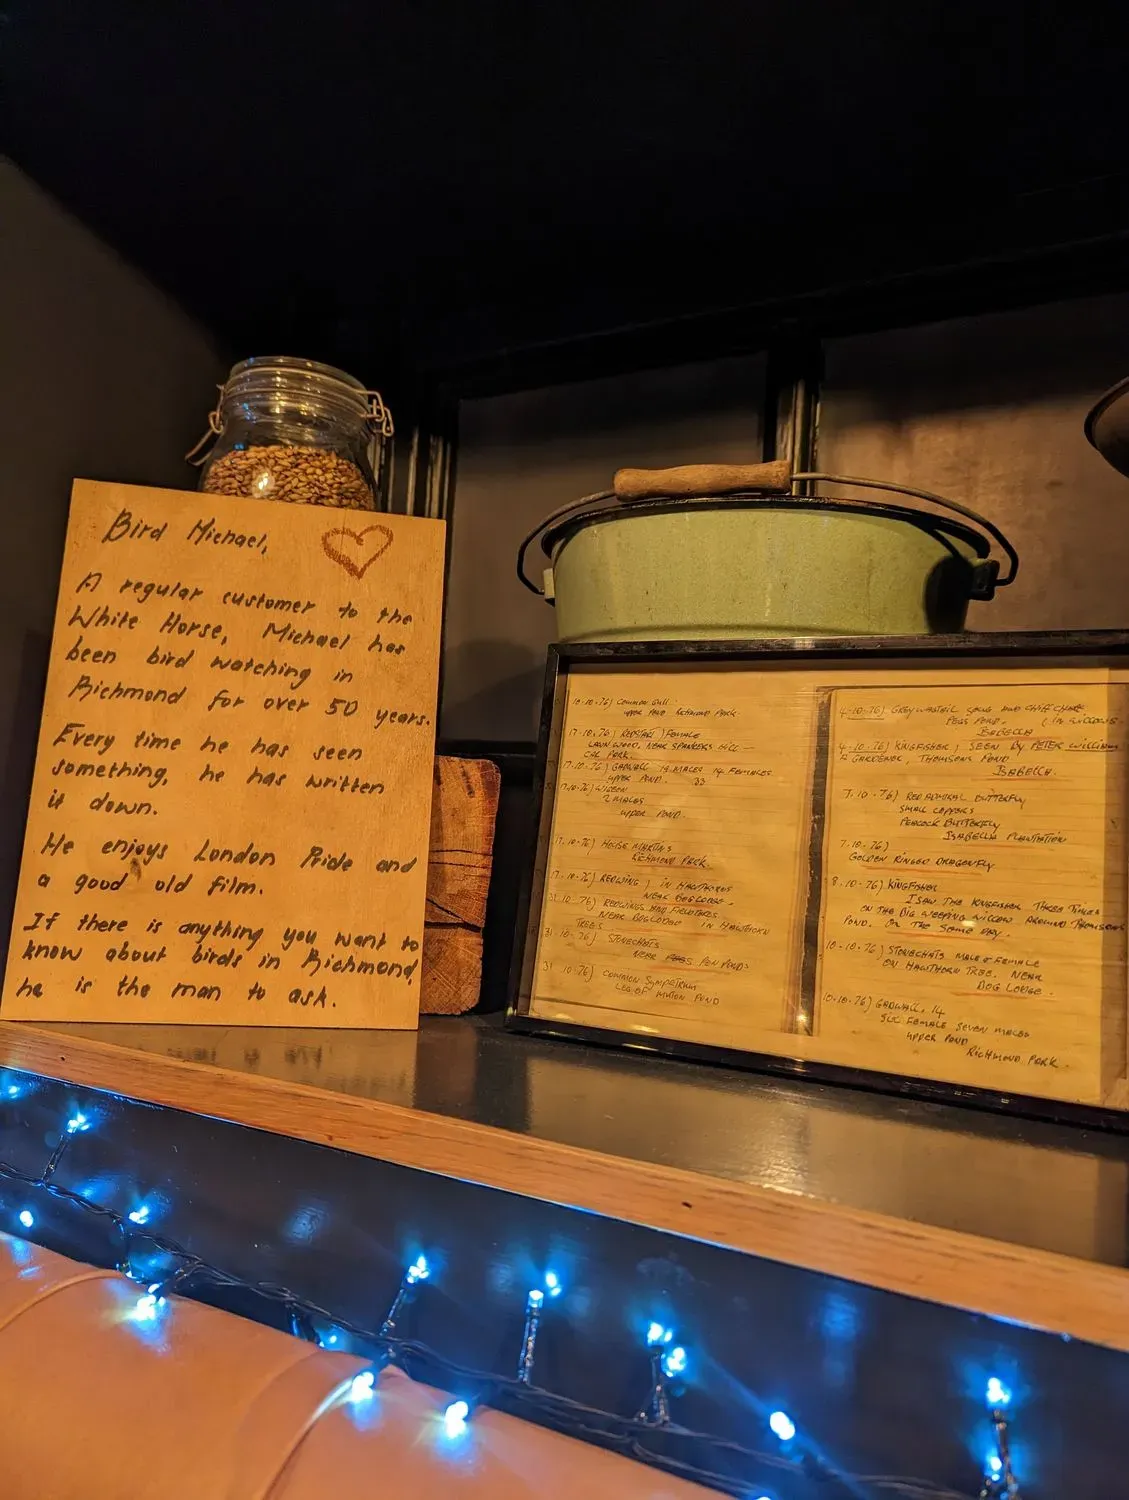 Bird Michael,
A regular customer to the
White Horse, Michael has
been bird watching in
Richmond for over 50 years.
Every time he has seen
something, he has written
it down.
He enjoys London Pride and
a good old film.
If there is anything you want to
know about birds in Richmond,
he is the man to ask.
10-10-76) Common Gull.
UPPER POND RICHMOND PARK.
17-10-76) REDSTART) FEMALE
LAWN WOOD, NEAR SPANKERS HILL —
CAR PARK.
17-10-76) GADWALL 19 MALES 14 FEMALES
UPPER POND. 33
17-10-76) WIGEON
2 MALES
UPPER POND.
17-10-76) HOUSE MARTINS
RICHMOND PARK.
17-10-76) REDWING) IN HAWTHORNS
NEAR DOG LODGE.
31 10-76) REDWINGS AND FIELDFARES
NEAR DOG LODGE IN HAWTHORN
TREES
31 10-76) STONECHATS
NEAR PEN PONDS
31 10-76) COMMON SYMPETRUM
LEG OF MUTTON POND
4-10-76) GREY WAGTAIL SONG AND CHIFF CHAFF
PEGS POND. (IN WILLOWS
ISABELLA
4-10-76) KINGFISHER) SEEN BY PETER WILLIAMS
GARDENER, THOMSONS POND
ISABELLA.
7.10.76) RED ADMIRAL BUTTERFLY
SMALL COPPERS
PEACOCK BUTTERFLY
ISABELLA PLANTATION
7.10-76)
GOLDEN RINGED DRAGONFLY
8.10-76) KINGFISHER
I SAW THE KINGFISHER THREE TIMES
ON THE BIG WEEPING WILLOW AROUND THOMSONS
POND. ON THE SAME DAY.
10-10-76) STONECHATS MALE & FEMALE
ON HAWTHORN TREE. NEAR
DOG LODGE.
10-10-76) GADWALL, 14
SIX FEMALE SEVEN MALES
UPPER POND
RICHMOND PARK.